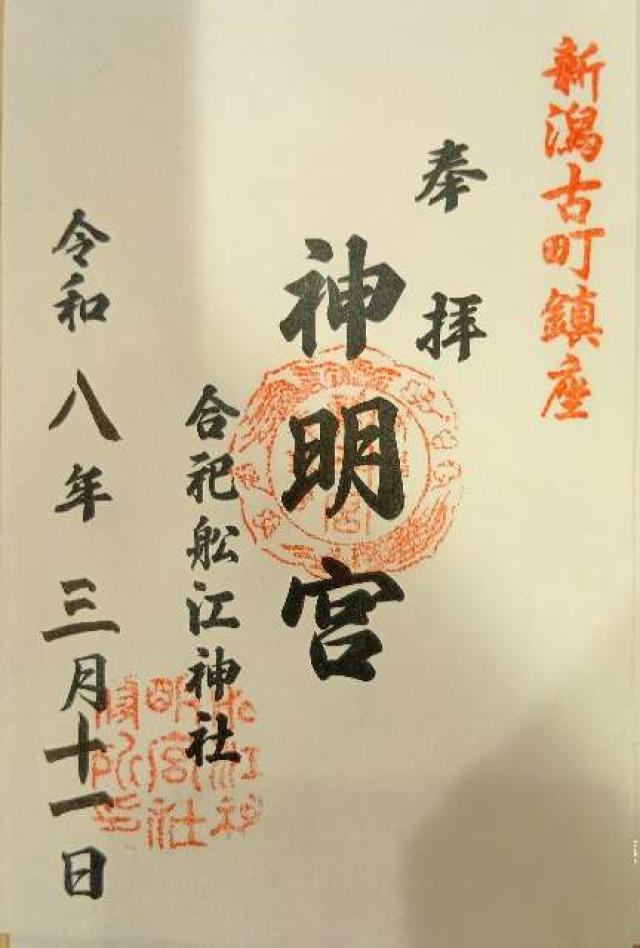 新潟古町鎮座
奉拝
神明宮
合祀舩江神社
令和八年三月十一日